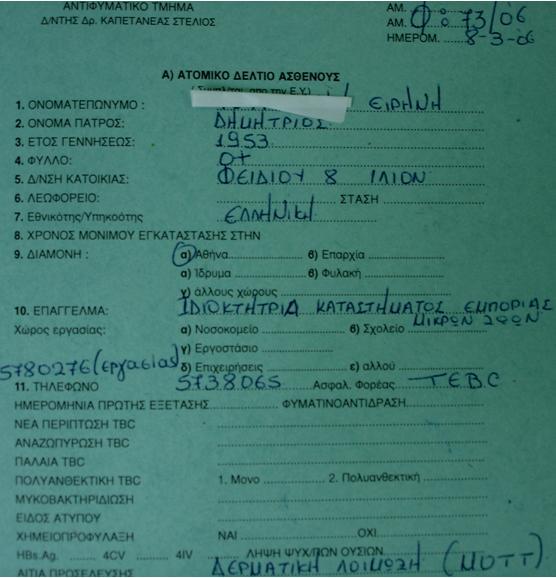 ΑΝΤΙΦΥΜΑΤΙΚΟ ΤΜΗΜΑ
Δ/ΝΤΗΣ Δρ. ΚΑΠΕΤΑΝΕΑΣ ΣΤΕΛΙΟΣ
ΑΜ.
ΑΜ. Φ: 73/06
ΗΜΕΡΟΜ. 8-3-06
Α) ΑΤΟΜΙΚΟ ΔΕΛΤΙΟ ΑΣΘΕΝΟΥΣ
1. ΟΝΟΜΑΤΕΠΩΝΥΜΟ : ΕΙΡΗΝΗ
2. ΟΝΟΜΑ ΠΑΤΡΟΣ: ΔΗΜΗΤΡΙΟΣ
3. ΕΤΟΣ ΓΕΝΝΗΣΕΩΣ: 1953
4. ΦΥΛΛΟ:
5. Δ/ΝΣΗ ΚΑΤΟΙΚΙΑΣ: ΦΕΙΔΙΟΥ 8 ΙΛΙΟΝ
6. ΛΕΩΦΟΡΕΙΟ: ΣΤΑΣΗ
7. Εθνικότης/Υπηκοότης ΕΛΛΗΝΙΚΗ
8. ΧΡΟΝΟΣ ΜΟΝΙΜΟΥ ΕΓΚΑΤΑΣΤΑΣΗΣ ΣΤΗΝ
9. ΔΙΑΜΟΝΗ : α) Αθήνα β) Επαρχία
α) Ίδρυμα β) Φυλακή
γ) άλλους χώρους
10. ΕΠΑΓΓΕΛΜΑ: ΙΔΙΟΚΤΗΤΡΙΑ ΚΑΤΑΣΤΗΜΑΤΟΣ ΕΜΠΟΡΙΑΣ
ΜΙΚΡΩΝ ΖΩΩΝ
Χώρος εργασίας: α) Νοσοκομείο β) Σχολείο
γ) Εργοστάσιο
5780276 (εργασίας) δ) Επιχειρήσεις ε) αλλού
11. ΤΗΛΕΦΩΝΟ 5738065 Ασφαλ. Φορέας ΤΕΒΕ
ΗΜΕΡΟΜΗΝΙΑ ΠΡΩΤΗΣ ΕΞΕΤΑΣΗΣ ΦΥΜΑΤΙΝΟΑΝΤΙΔΡΑΣΗ
ΝΕΑ ΠΕΡΙΠΤΩΣΗ TBC
ΑΝΑΖΩΠΥΡΩΣΗ TBC
ΠΑΛΑΙΑ TBC
ΠΟΛΥΑΝΘΕΚΤΙΚΗ TBC 1. Μονο 2. Πολυανθεκτική
ΜΥΚΟΒΑΚΤΗΡΙΔΙΩΣΗ
ΕΙΔΟΣ ΑΤΥΠΟΥ
ΧΗΜΕΙΟΠΡΟΦΥΛΑΞΗ ΝΑΙ ΟΧΙ
HBs.Ag. 4CV 4IV ΛΗΨΗ ΨΥΧ/ΠΩΝ ΟΥΣΙΩΝ
ΑΙΤΙΑ ΠΡΟΣΕΛΕΥΣΗΣ ΔΕΡΜΑΤΙΚΗ ΛΟΙΜΩΞΗ (ΜΟΤΤ)